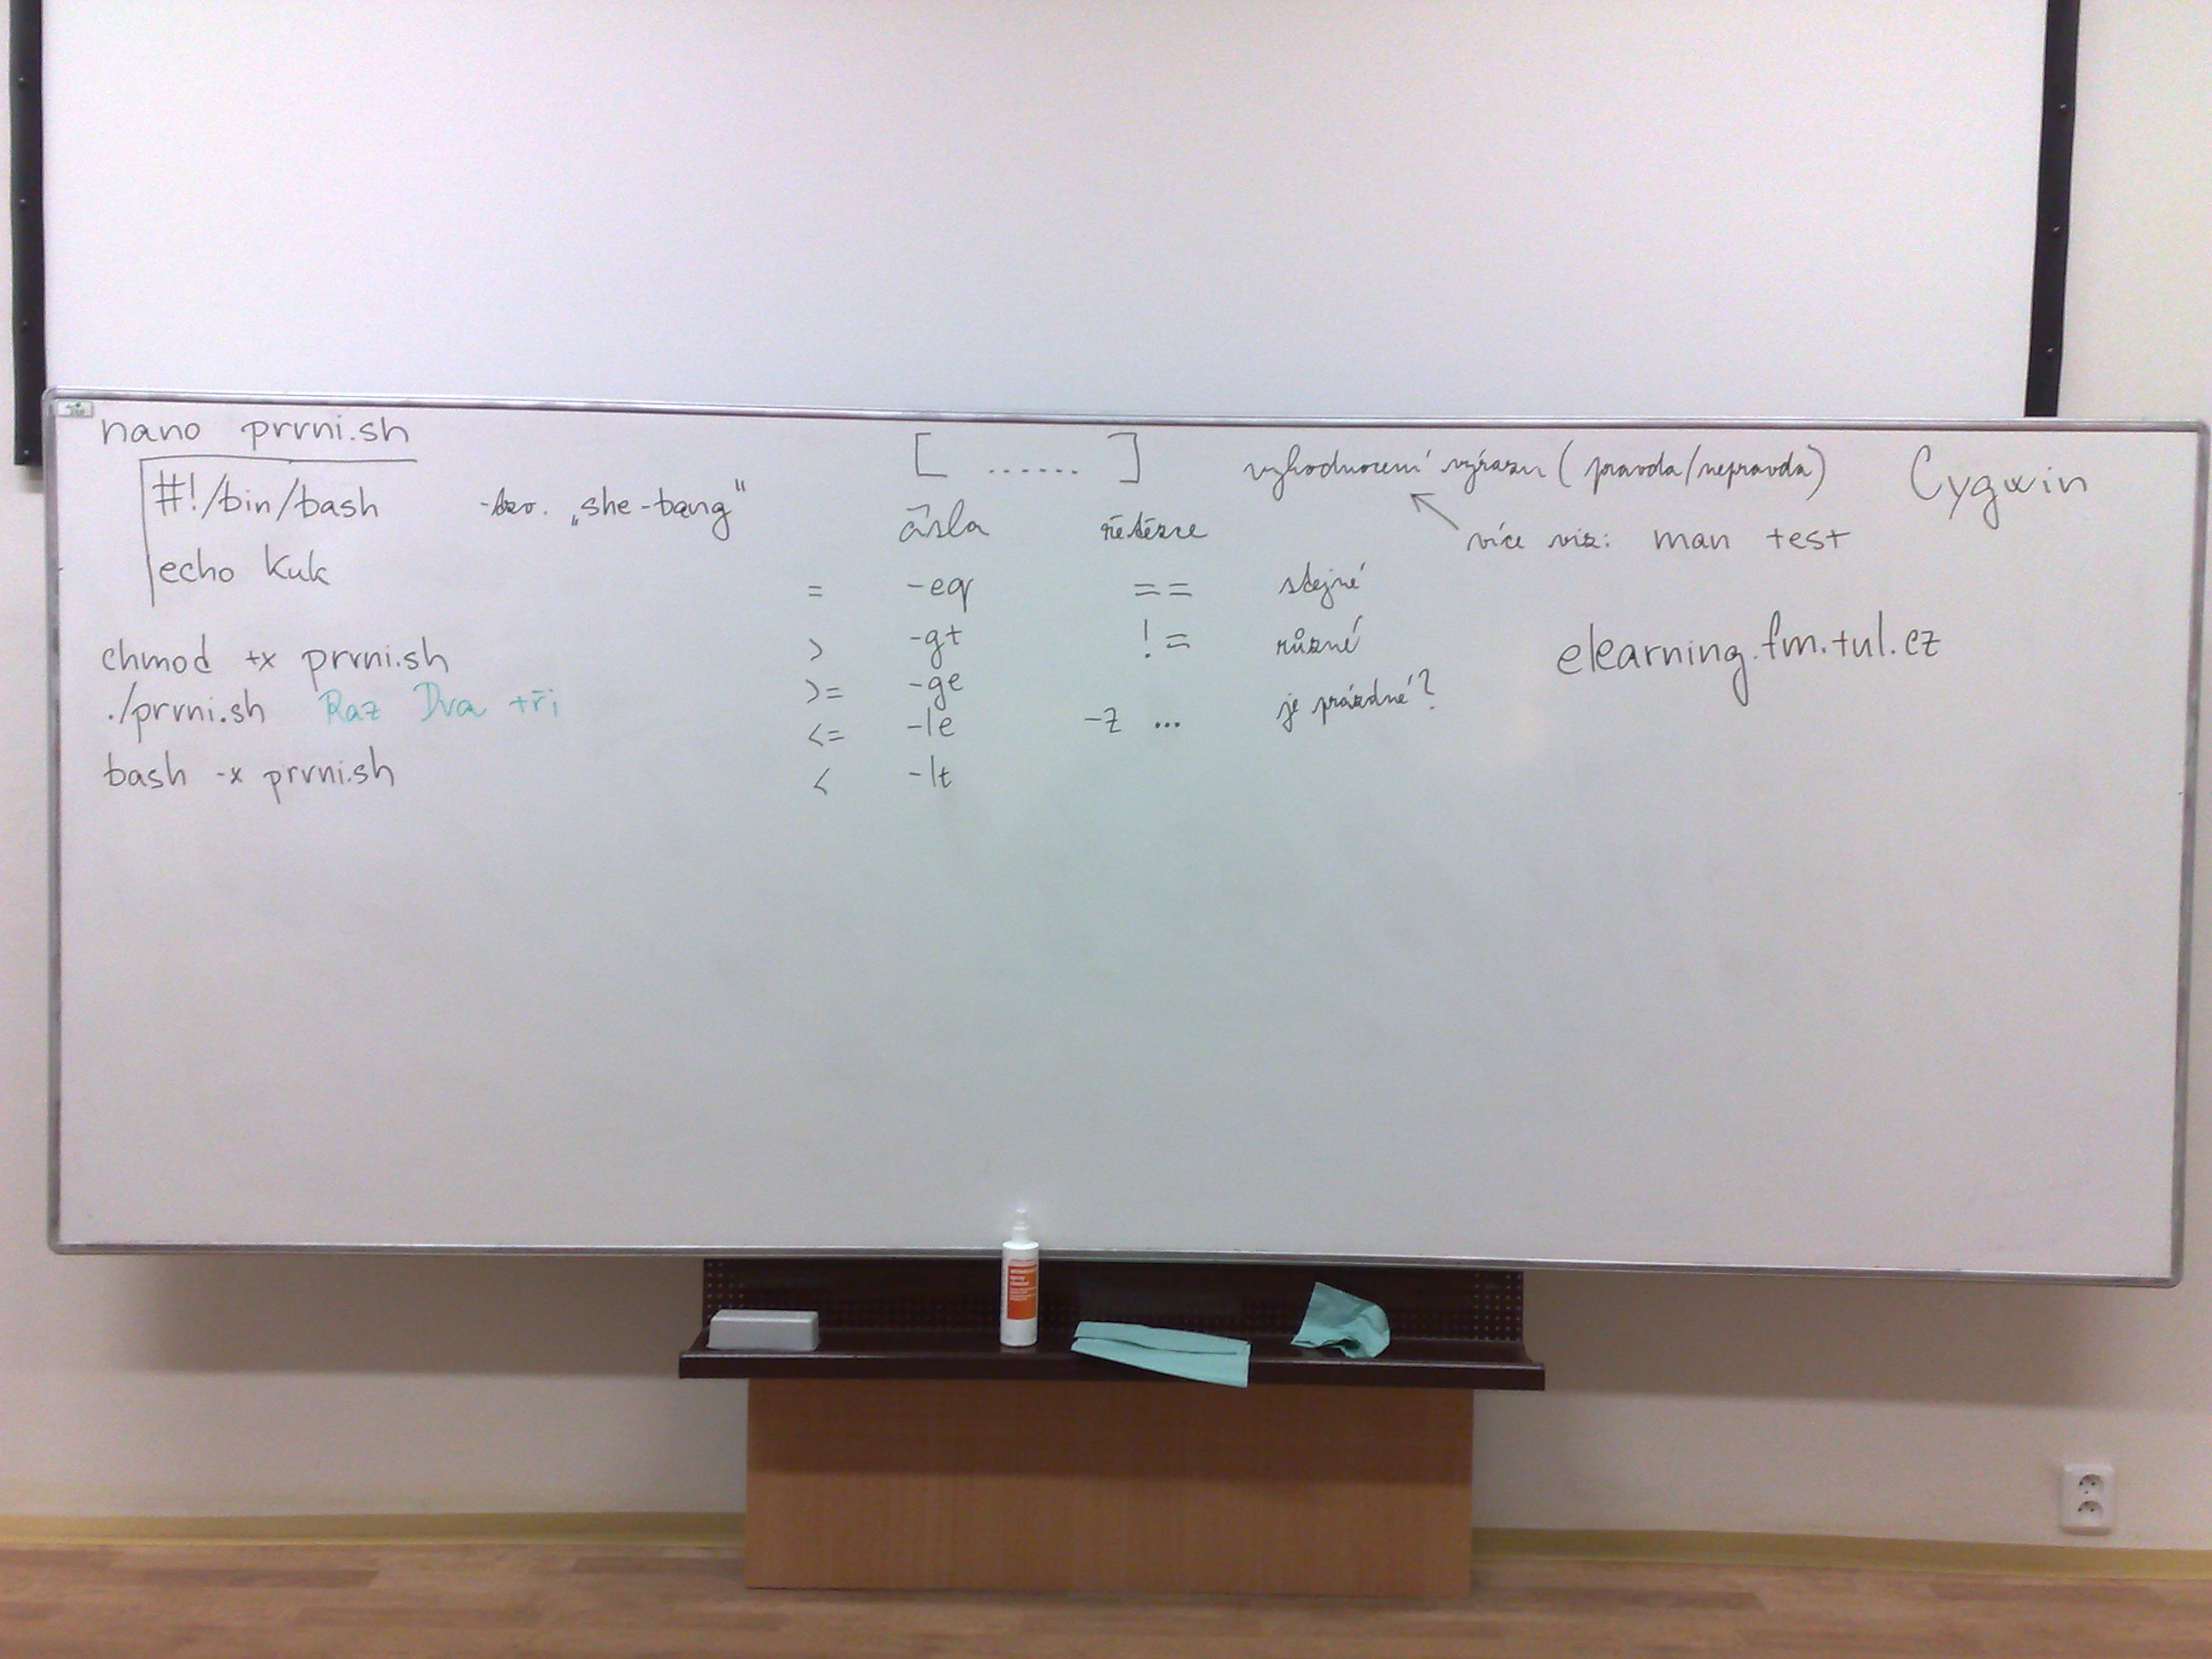 nano prvni.sh
#!/bin/bash - tzv. „she-bang"
echo Kuk
chmod +x prvni.sh
./prvni.sh Raz Dva tři
bash -x prvni.sh
[ ...... ] vyhodnocení výrazu (pravda/nepravda)
více viz: man test
čísla řetězce
= -eq == stejné
> -gt != různé
>= -ge
<= -le -z ... je prázdné?
< -lt
Cygwin
elearning.fm.tul.cz